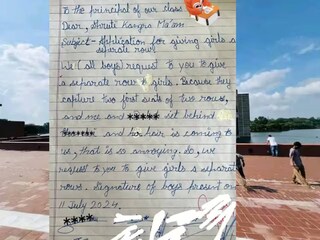 To the principal of our class
Dear, Shruti Kangra Ma'am
Subject - Application for giving girls a
separate row
We (all boys) request to you to give
a separate row to girls. Because they
capture two front seats of two rows,
and me and ***** set behind
****** and her hair is coming to
us, that is so annoying. So, we
request to you to give girls a separate
rows. Signature of boys present on
11 July 2024.
****